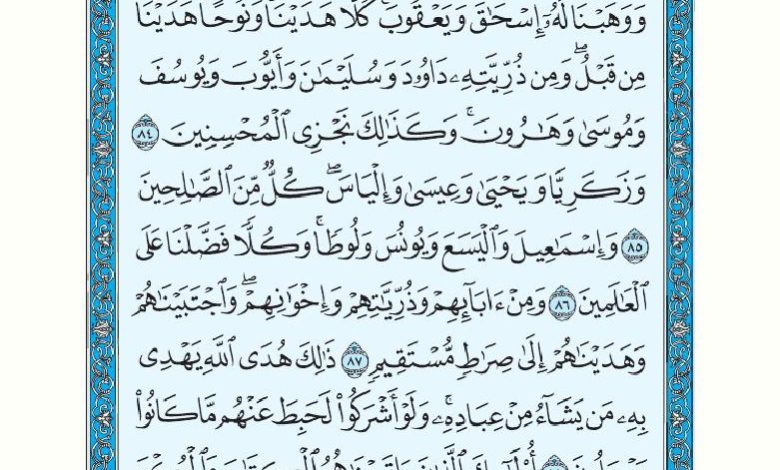 وَوَهَبْنَا لَهُۥٓ إِسْحَٰقَ وَيَعْقُوبَ ۚ كُلًّا هَدَيْنَا ۚ وَنُوحًا هَدَيْنَا
مِن قَبْلُ ۖ وَمِن ذُرِّيَّتِهِۦ دَاوُۥدَ وَسُلَيْمَٰنَ وَأَيُّوبَ وَيُوسُفَ
وَمُوسَىٰ وَهَٰرُونَ ۚ وَكَذَٰلِكَ نَجْزِى ٱلْمُحْسِنِينَ ٨٤
وَزَكَرِيَّا وَيَحْيَىٰ وَعِيسَىٰ وَإِلْيَاسَ ۖ كُلٌّ مِّنَ ٱلصَّٰلِحِينَ
٨٥ وَإِسْمَٰعِيلَ وَٱلْيَسَعَ وَيُونُسَ وَلُوطًا ۚ وَكُلًّا فَضَّلْنَا عَلَى
ٱلْعَٰلَمِينَ ٨٦ وَمِنْ ءَابَآئِهِمْ وَذُرِّيَّٰتِهِمْ وَإِخْوَٰنِهِمْ ۖ وَٱجْتَبَيْنَٰهُمْ
وَهَدَيْنَٰهُمْ إِلَىٰ صِرَٰطٍ مُّسْتَقِيمٍ ٨٧ ذَٰلِكَ هُدَى ٱللَّهِ يَهْدِى
بِهِۦ مَن يَشَآءُ مِنْ عِبَادِهِۦ ۚ وَلَوْ أَشْرَكُوا۟ لَحَبِطَ عَنْهُم مَّا كَانُوا۟